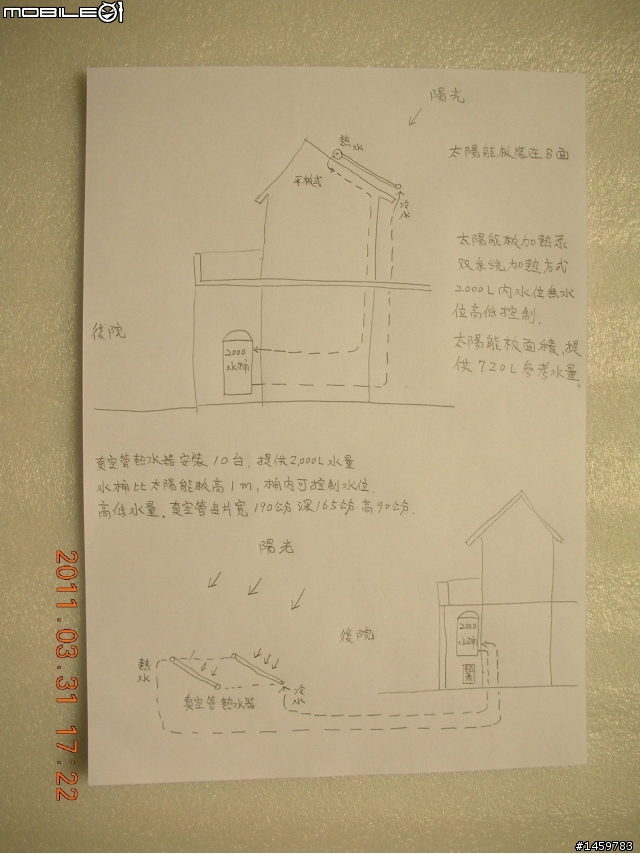 MOBILE01
陽光
熱水
太陽能板裝在B面
平板式
冷水
太陽能板加熱泵
双系統加熱方式
2000L內水位無水
位高低控制.
太陽能板面積,提
供720L參考水量。
後院
2000
水桶
真空管熱水器安裝10台,提供2,000L水量
水桶比太陽能板高1m,桶內可控制水位.
高低水量。真空管每片寬190公分深165公分高90公分.
陽光
後院
2000
水桶
熱水
冷水
真空管熱水器
2011.03.31 17:22
#1459783